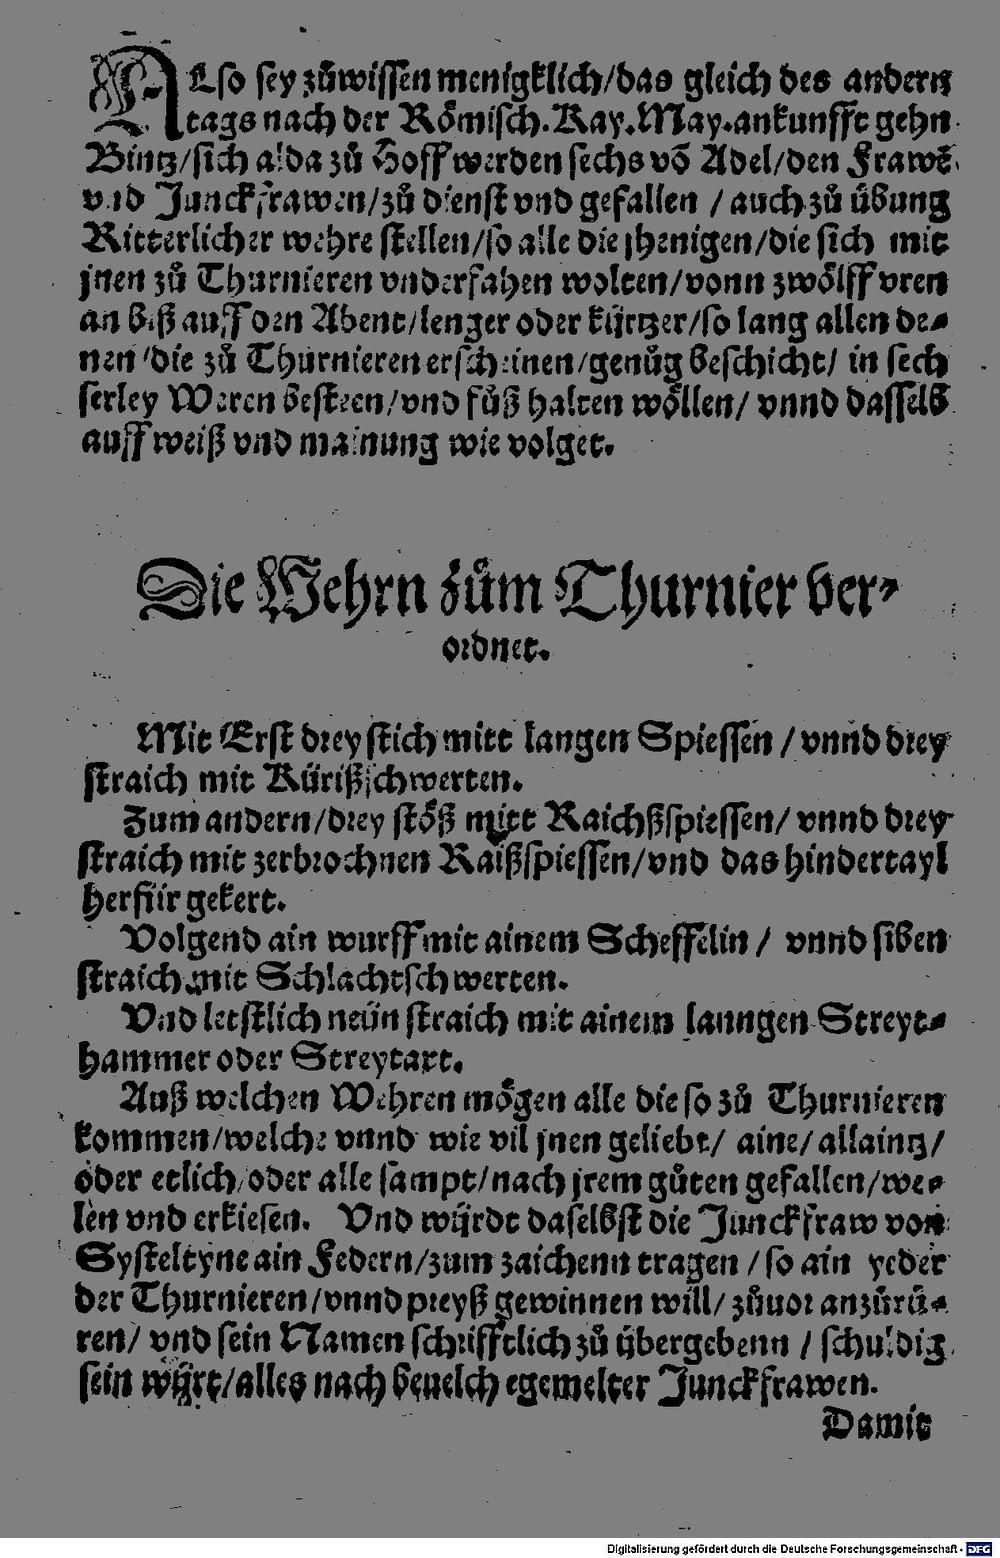 ALso sey zůwissen menigklich/das gleich des andern
tags nach der Rõmisch.Kay.May.ankunfft gehn
Bintz/sich alda zů Hoff werden sechs võ Adel/den Frawẽ
vnd Junckfrawen/zů dienst vnd gefallen / auch zů übung
Ritterlicher wehre stellen/so alle die jhenigen/die sich mit
jnen zů Thurnieren vnderfahen wolten/vonn zwõlff vren
an biß auff den Abent/lenger oder kürtzer/so lang allen de⸗
nen/die zů Thurnieren erscheinen/genůg beschicht/ in sech
serley Weren besteen/vnd fůß halten wõllen/ vnnd dasselb
auff weiß vnd mainung wie volget.
Die Wehrn zům Thurnier ver⸗
ordnet.
Mit Erst drey stich mitt langen Spiessen / vnnd drey
straich mit Kürißschwerten.
Zum andern/drey stõß mitt Raichßspiessen/ vnnd drey
straich mit zerbrochnen Raißspiessen/vnd das hindertayl
herfür gekert.
Volgend ain wurff mit ainem Scheffelin / vnnd siben
straich mit Schlachtschwerten.
Vnd letstlich neün straich mit ainem lanngen Streyt⸗
hammer oder Streytaxt.
Auß welchen Wehren mõgen alle die so zů Thurnieren
kommen/welche vnnd wie vil jnen geliebt/ aine/ allaintz/
oder etlich/oder alle sampt/nach jrem gůten gefallen/we⸗
len vnd erkiesen. Vnd würdt daselbst die Junckfraw von
Systeltyne ain Federn/zum zaichenn tragen / so ain yeder
der Thurnieren/vnnd preyß gewinnen will/ zůuor anzůrü⸗
ren/ vnd sein Namen schrifftlich zů übergebenn / schuldig
sein würt/alles nach beuelch egemelter Junckfrawen.
Damit
Digitalisierung gefördert durch die Deutsche Forschungsgemeinschaft - DFG